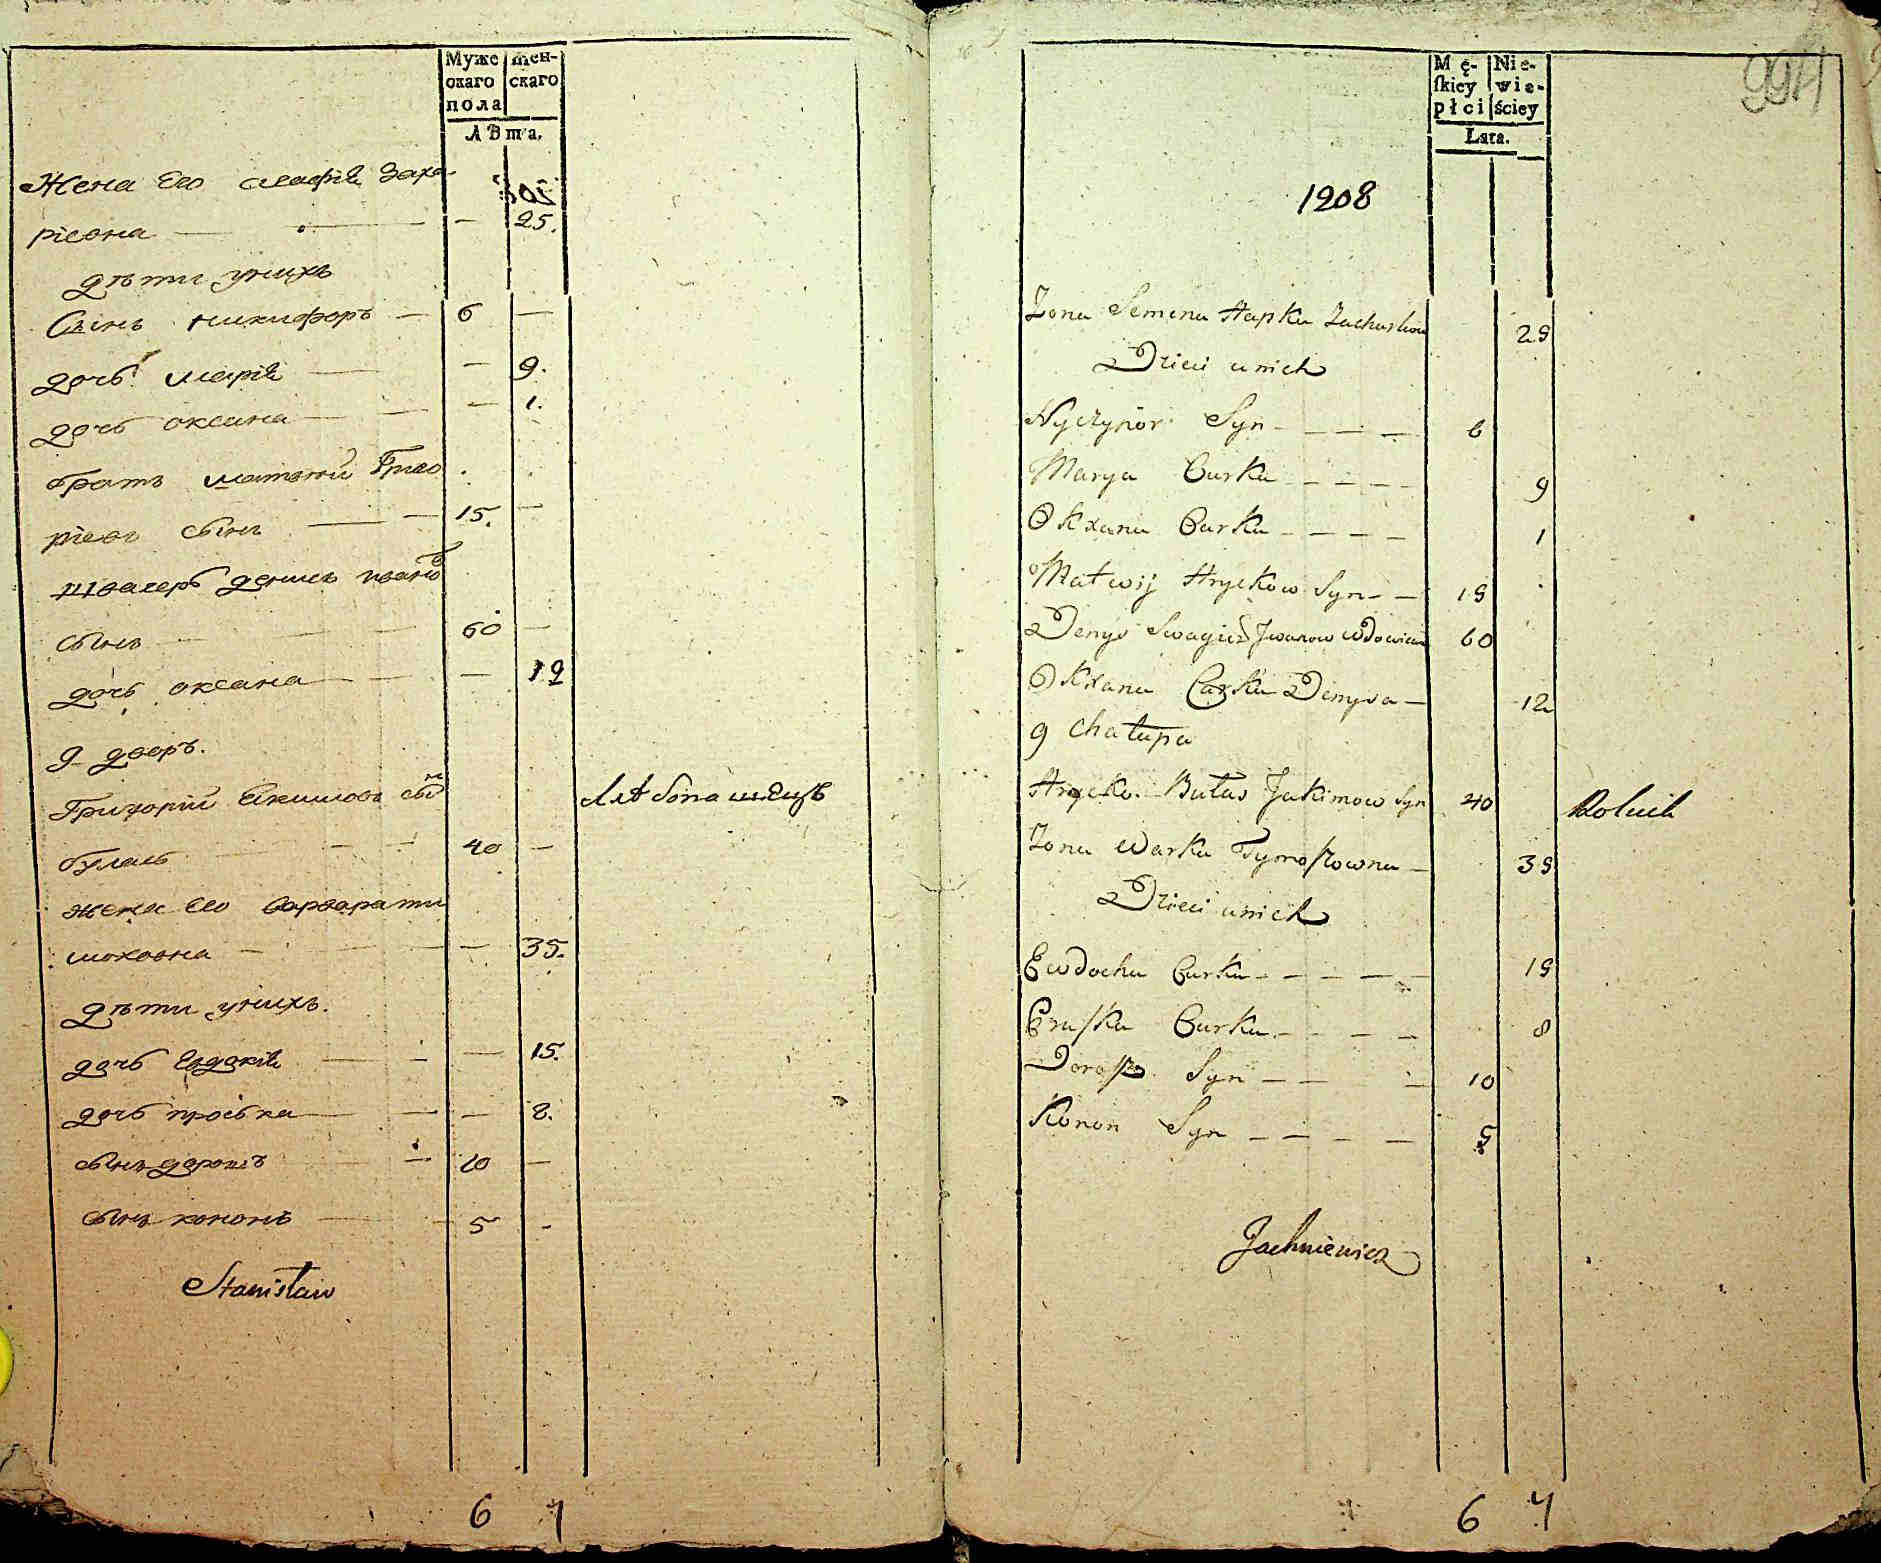 Муже
скаго
пола
жен-
скаго
Лѣта.
Жена Его Агафія Заха-
ріевна — — 25.
дѣти унихъ
Сынъ никифоръ — 6 —
дочь марія — — 9.
дочь оксана — — 1.
братъ матвѣй Григо
ріевъ сынъ — 15. —
денисъ ивановъ
сынъ — 60 —
дочь оксана — — 12
9 дворъ.
Григорій Екимовъ сынъ
буласъ — 40 —
хлѣбопашецъ
жена Его варвара ти
мохвона — — 35.
дѣти унихъ.
дочь Евдокія — — 15.
дочь проська — — 8.
сынъ дорошъ — 10 —
сынъ кононъ — 5 -
Stanisław
6 7
994
Mę-
skiey
płci
Nie-
wie-
ściey
Lata.
1208
Zona Semena Hapka Zacharkow 25
Dzieci unich
Nyczypor Syn — — — 6
Marya Curka — — — — 9
Okxana Curka — — — — 1
Matwij Hryckow Syn — — 15
Denys Swagier Jwanow Wdowiec 60
Okxana Carka Denysa — 12
9 Chałupa
Hrycko Bułas Jakimow Syn 40 Rolnik
Zona Warka Tymoszowna — 35
Dzieci unich
Ewdocha Curka — — — — 15
Pruska Curka — — — — 8
Dorosz Syn — — — 10
Konon Syn — — — — 5
Jachniewicz
6 7